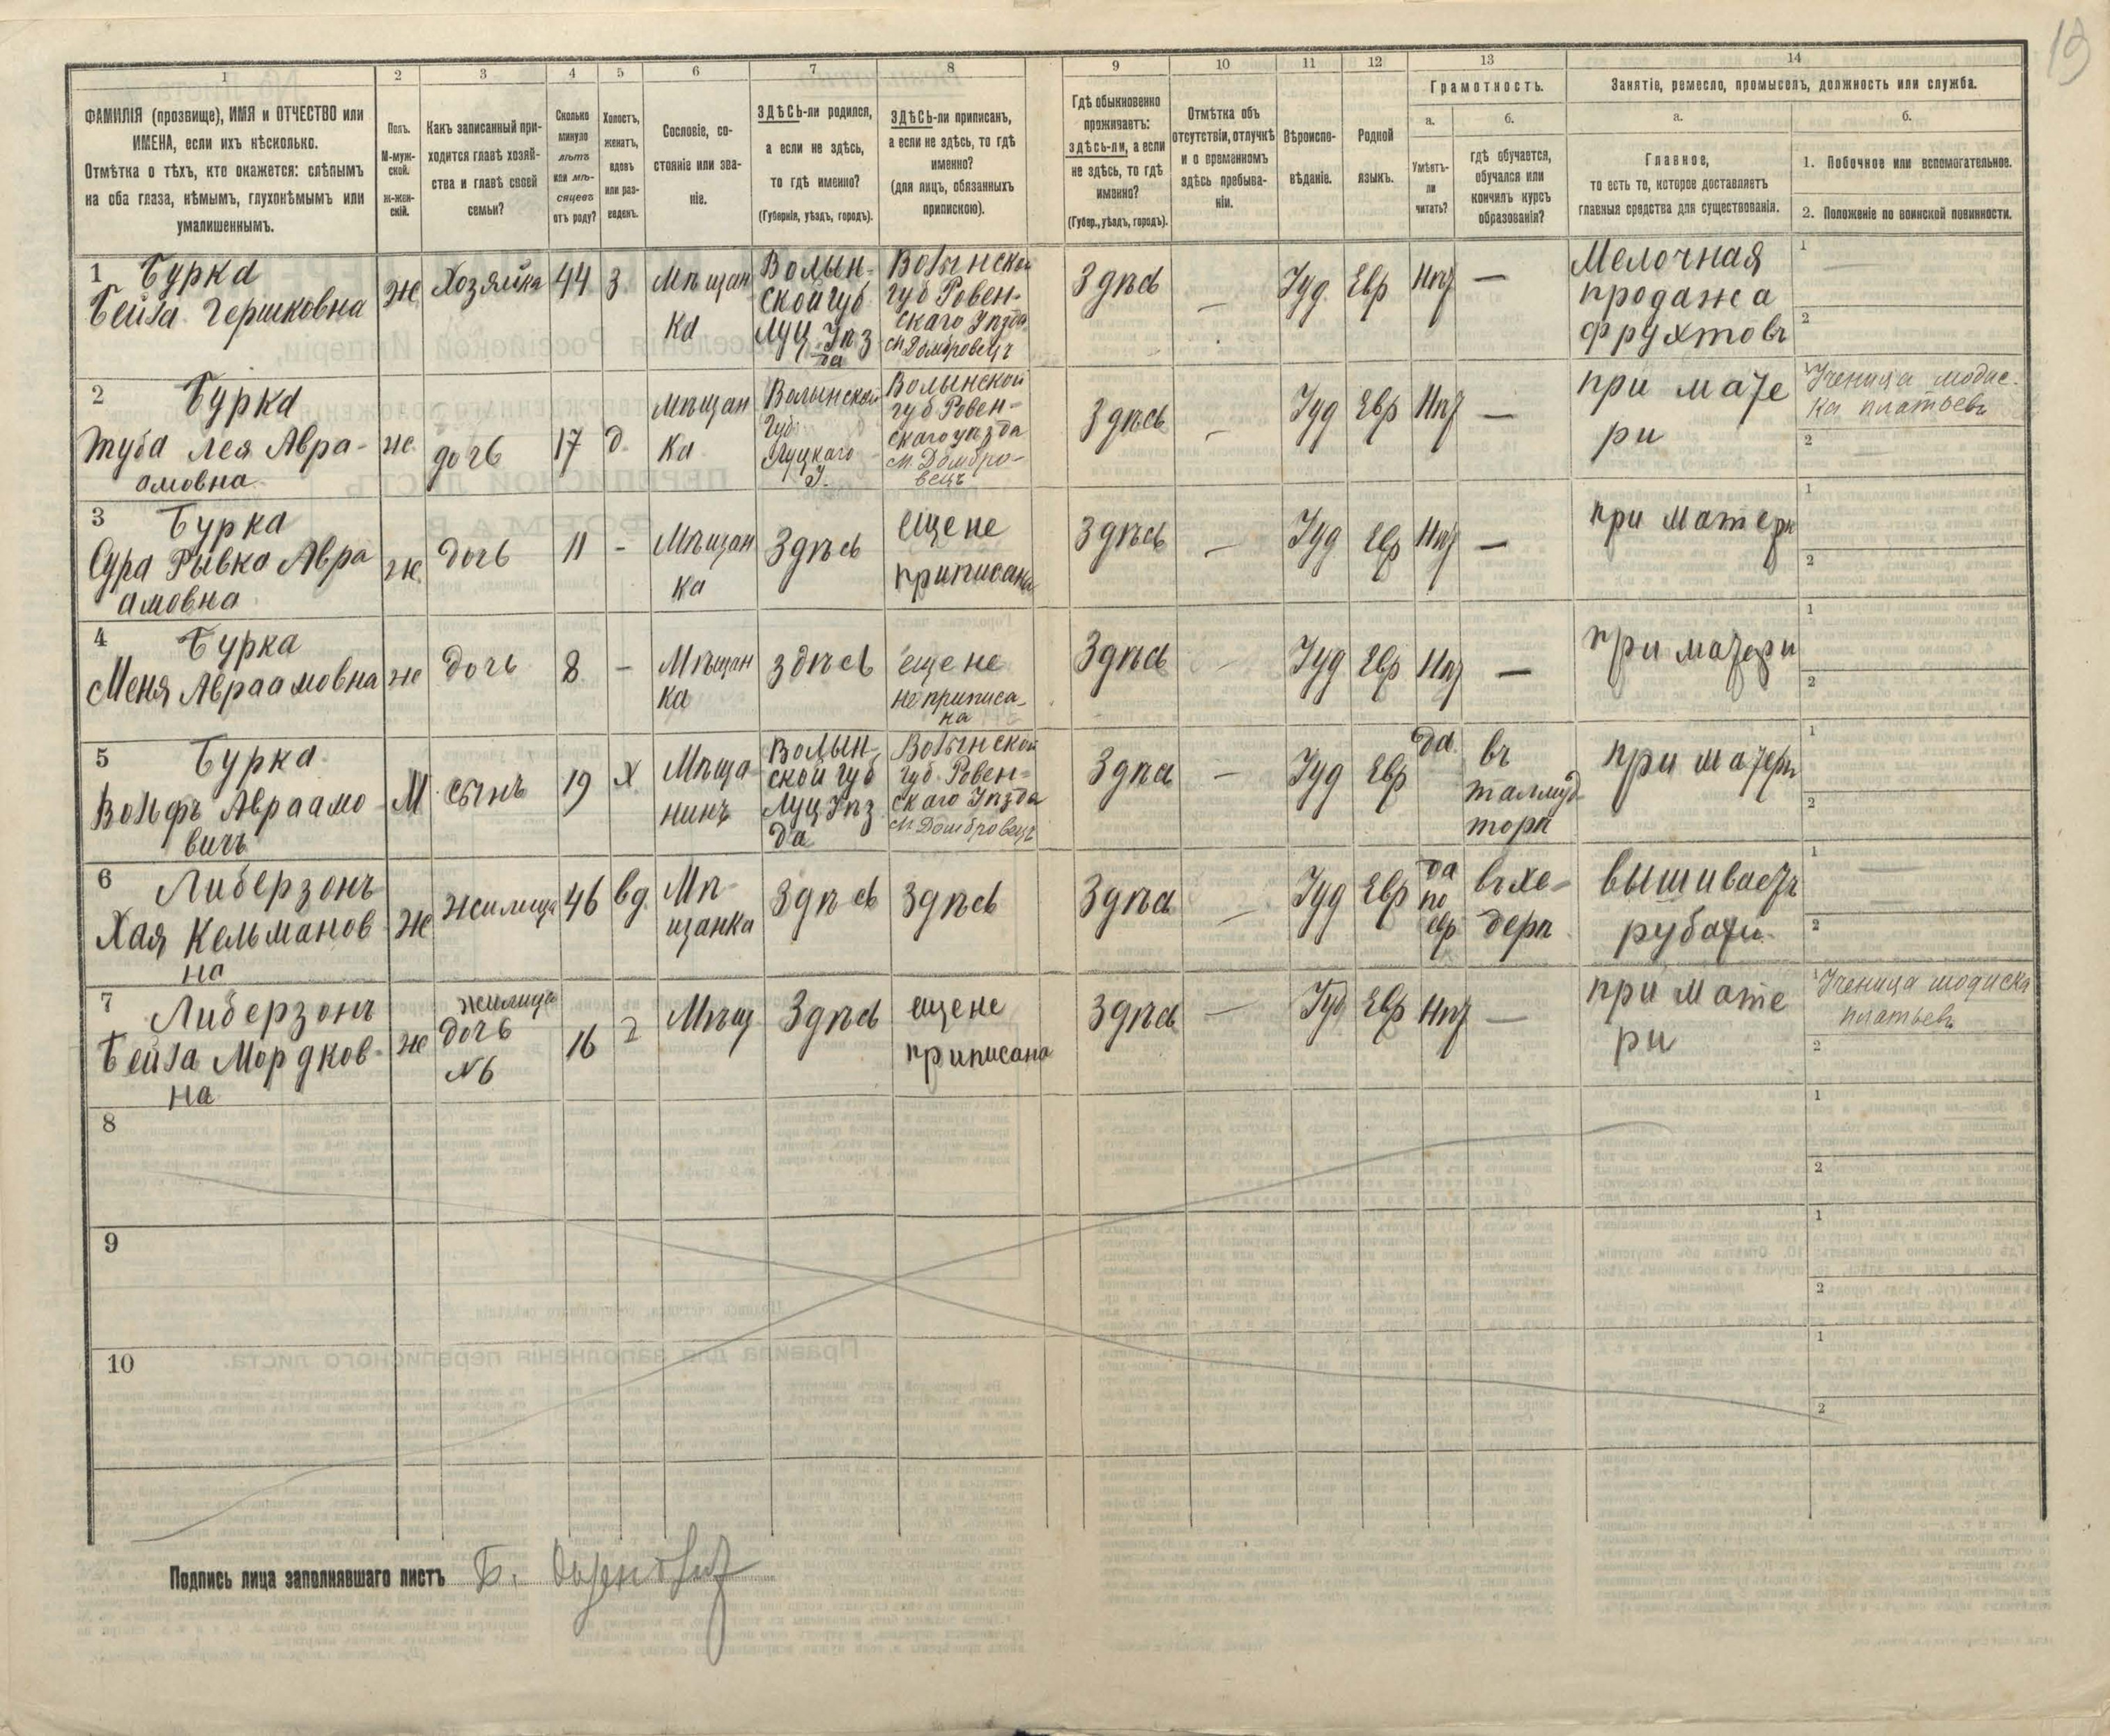 19
1 2 3 4 5 6 7 8 9 10 11 12 13 14
ФАМИЛІЯ (прозвище), ИМЯ и ОТЧЕСТВО или
ИМЕНА, если ихъ нѣсколько.
Отмѣтка о тѣхъ, кто окажется: слѣпымъ
на оба глаза, нѣмымъ, глухонѣмымъ или
умалишеннымъ.
Полъ.
М-муж-
ской.
ж-жен-
скій.
Какъ записанный при-
ходится главѣ хозяй-
ства и главѣ своей
семьи?
Сколько
минуло
лѣтъ
или мѣ-
сяцевъ
отъ роду?
Холостъ,
женатъ,
вдовъ
или раз-
веденъ.
Сословіе, со-
стояніе или зва-
ніе.
ЗДѢСЬ-ли родился,
а если не здѣсь,
то гдѣ именно?
(Губернія, уѣздъ, городъ).
ЗДѢСЬ-ли приписанъ,
а если не здѣсь, то гдѣ
именно?
(для лицъ, обязанныхъ
припискою).
Гдѣ обыкновенно
проживаетъ:
здѣсь-ли, а если
не здѣсь, то гдѣ
именно?
(Губер., уѣздъ, городъ).
Отмѣтка объ
отсутствіи, отлучкѣ
и о временномъ
здѣсь пребыва-
ніи.
Вѣроиспо-
вѣданіе.
Родной
языкъ.
Грамотность.
а.
Умѣетъ-
ли
читать?
б.
гдѣ обучается,
обучался или
кончилъ курсъ
образованія?
Занятіе, ремесло, промыселъ, должность или служба.
а.
Главное,
то есть то, которое доставляетъ
главныя средства для существованія.
б.
1. Побочное или вспомогательное.
2. Положеніе по воинской повинности.
1 Бурка
Бейла Гершковна
Ж
Хозяйка
44
З
Мѣщан
ка
Волын-
ской губ
Луц. Уѣз
да
Волынской
губ Ровен-
скаго Уѣзда
м. Домбровецъ
Здѣсь
—
Іуд.
Евр
Нѣт
—
Мелочная
продажа
фруктовъ
1 —
2
2 Бурка
Туба Лея Авра-
амовна
ж.
дочь
17
д.
Мѣщан
ка
Волынской
Губ.
Луцкаго
У.
Волынской
губ Ровен-
скаго уѣзда
м. Домбро-
вецъ
Здѣсь
—
Іуд
Евр
Нѣт
—
при мате
ри
1 Ученица модис-
ка платьевъ
2 —
3 Бурка
Сура Рывка Авра
амовна
ж.
дочь
11
-
Мѣщан
ка
Здѣсь
еще не
приписана
Здѣсь
—
Іуд
Евр
Нѣт
—
при матери
1
2
4 Бурка
Меня Авраамовна
ж
дочь
8
-
Мѣщан
ка
здѣсь
еще не
не приписа-
на
Здѣсь
—
Іуд
Евр
Нѣт
—
при матери
1
2
5 Бурка
Вольфъ Авраамо
вичъ
М
сынъ
19
Х
Мѣща
нинъ
Волын-
ской губ
Луц Уѣз
да
Волынской
губ. Ровен-
скаго Уѣзда
м. Домбровецъ
Здѣсь
—
Іуд
Евр
да
въ
талмуд
торѣ
при матери
1
2
6 Либерзонъ
Хая Кельманов
на
Ж
жилица
46
вд.
Мѣ-
щанка
Здѣсь
Здѣсь
Здѣсь
—
Іуд
Евр
да
по
евр
въ хе-
дерѣ
вышиваетъ
рубахи
1 —
2
7 Либерзонъ
Бейла Мордков-
на
ж
жилица
дочь
№6
16
Мѣщ
Здѣсь
еще не
приписана
Здѣсь
—
Іуд
Евр
Нѣт
—
при мате
ри
1 Ученица модиска
платьевъ
2
8
1
2
9
1
2
10
1
2
Подпись лица заполнявшаго листъ Б.